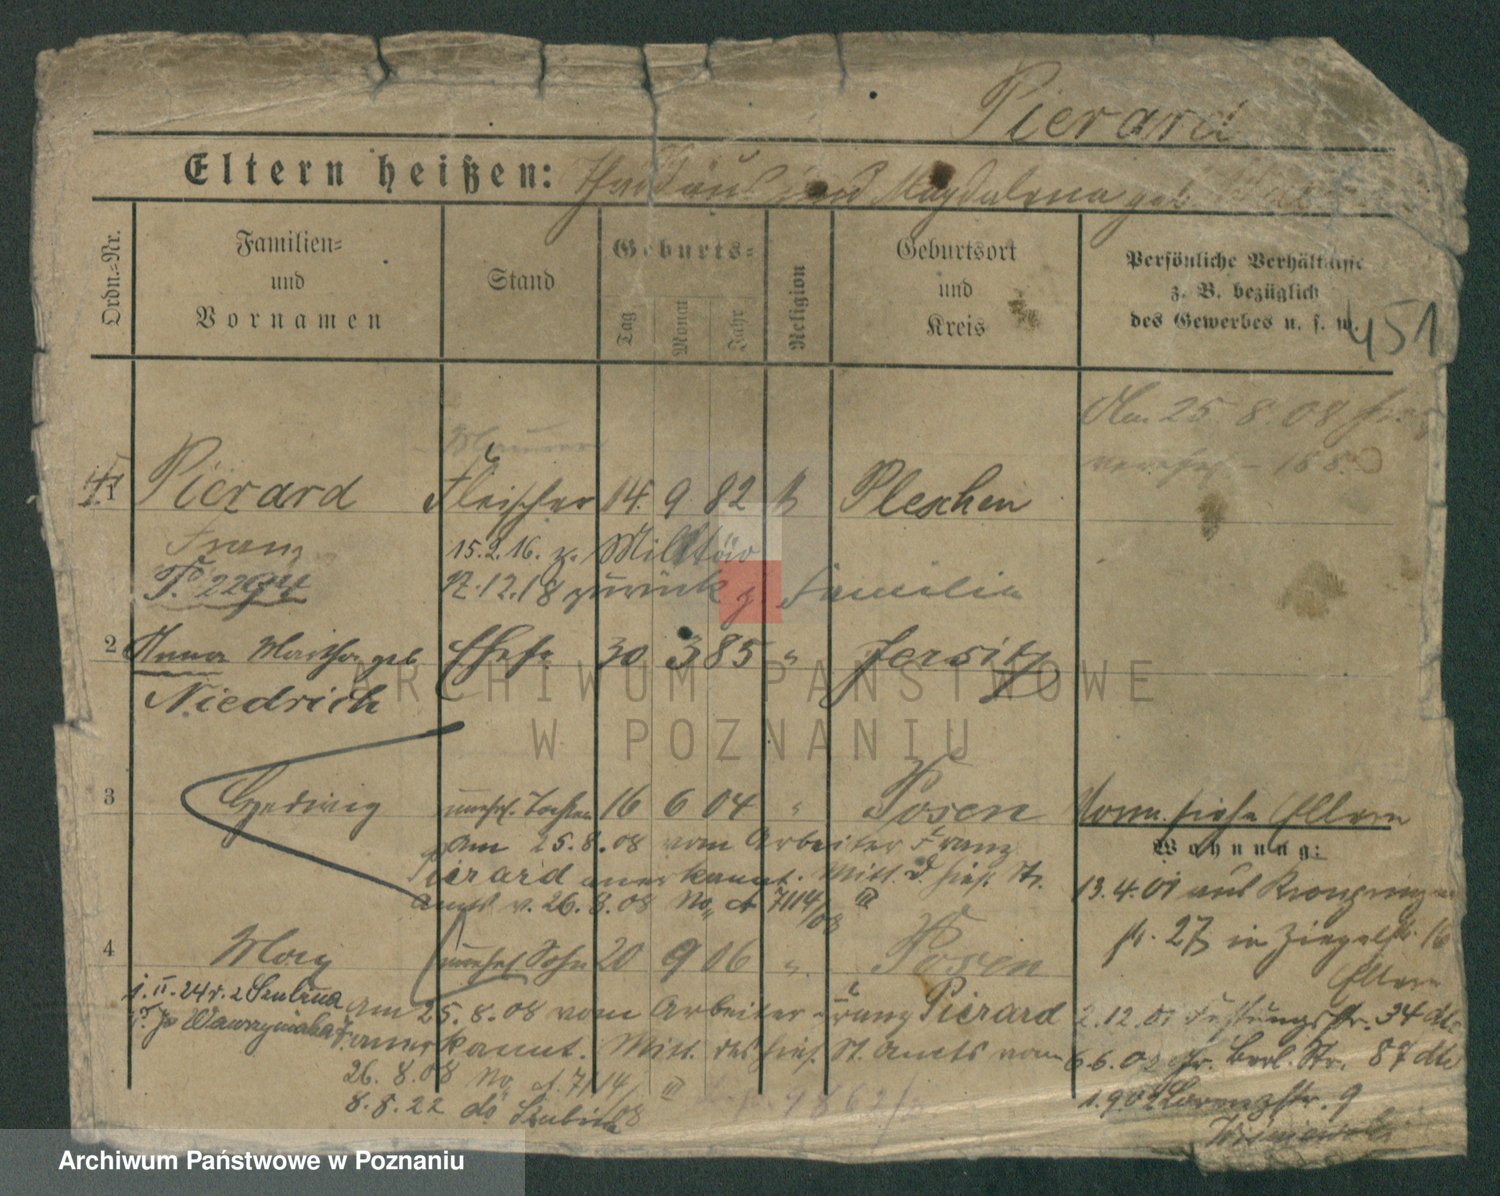 Pierard
Eltern heißen: Thadäus und Magdalena geb.
Ordn.=Nr.
Familien=
und
Vornamen
Stand
Geburts=
Tag
Monat
Jahr
Religion
Geburtsort
und
Kreis
Persönliche Verhältnisse
z. B. bezüglich
des Gewerbes u. s. w.
451
Am 25.8.08 hier
1 Pierard Fleischer 14. 9. 82 k Pleschen
Franz 15.2.16. z. Militär
17.12.18 zurück z. Familie
2 Anna Martha geb. Ehefr. 30 3 85 " Jersitz
Niedrich
ARCHIWUM PAŃSTWOWE
W POZNANIU
3 Hedwig unehel. Tochter 16 6 04 " Posen
am 25.8.08 vom Arbeiter Franz
Pierard anerkannt. Mitt. d. hies. St.
Amts v. 26.8.08 No. 7114/08 III
4 Max unehel. Sohn 20 9 06 " Posen
am 25.8.08 vom Arbeiter Franz Pierard
anerkannt. Mitt. des hies. St. Amts vom
26.8.08 No. 7114/08 III
8.8.22 Szubin
Vorm. siehe Eltern
Wohnung:
13.4.01 aus Kronprinzen
str. 27 in Ziegelstr. 16
Eltern
2.12.01 Festungsstr. 34 dto
6.6.02 Gr. Berl. Str. 87 dto
1.9.02 Lorenzstr. 9
Wisniewski
Archiwum Państwowe w Poznaniu